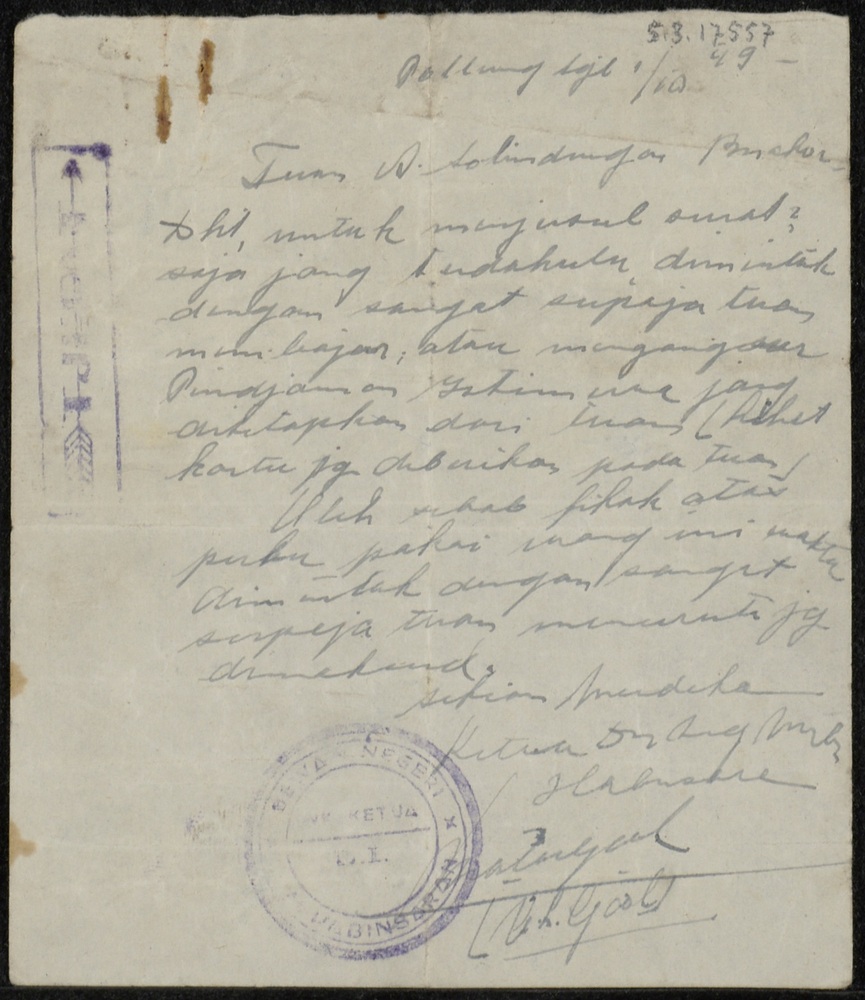 5.3.17557
tgl 1/10 49 -
Tuan A.
Dht, untuk menjusul surat2
saja jang terdahulu, dimintak
dengan sangat supaja tuan
membajar, atau mengangsur
Pindjaman jang
ditetapkan dari tuan (lihat
kartu jg diberikan pada tuan)
Oleh sebab pihak atas
perlu pakai uang ini waktu
dimintak dengan sangat
supaja tuan menuruti jg
dimaksud.
sekian Merdeka
Ketua
Habinsaran
DEWAN NEGERI
WK. KETUA
HABINSARAN